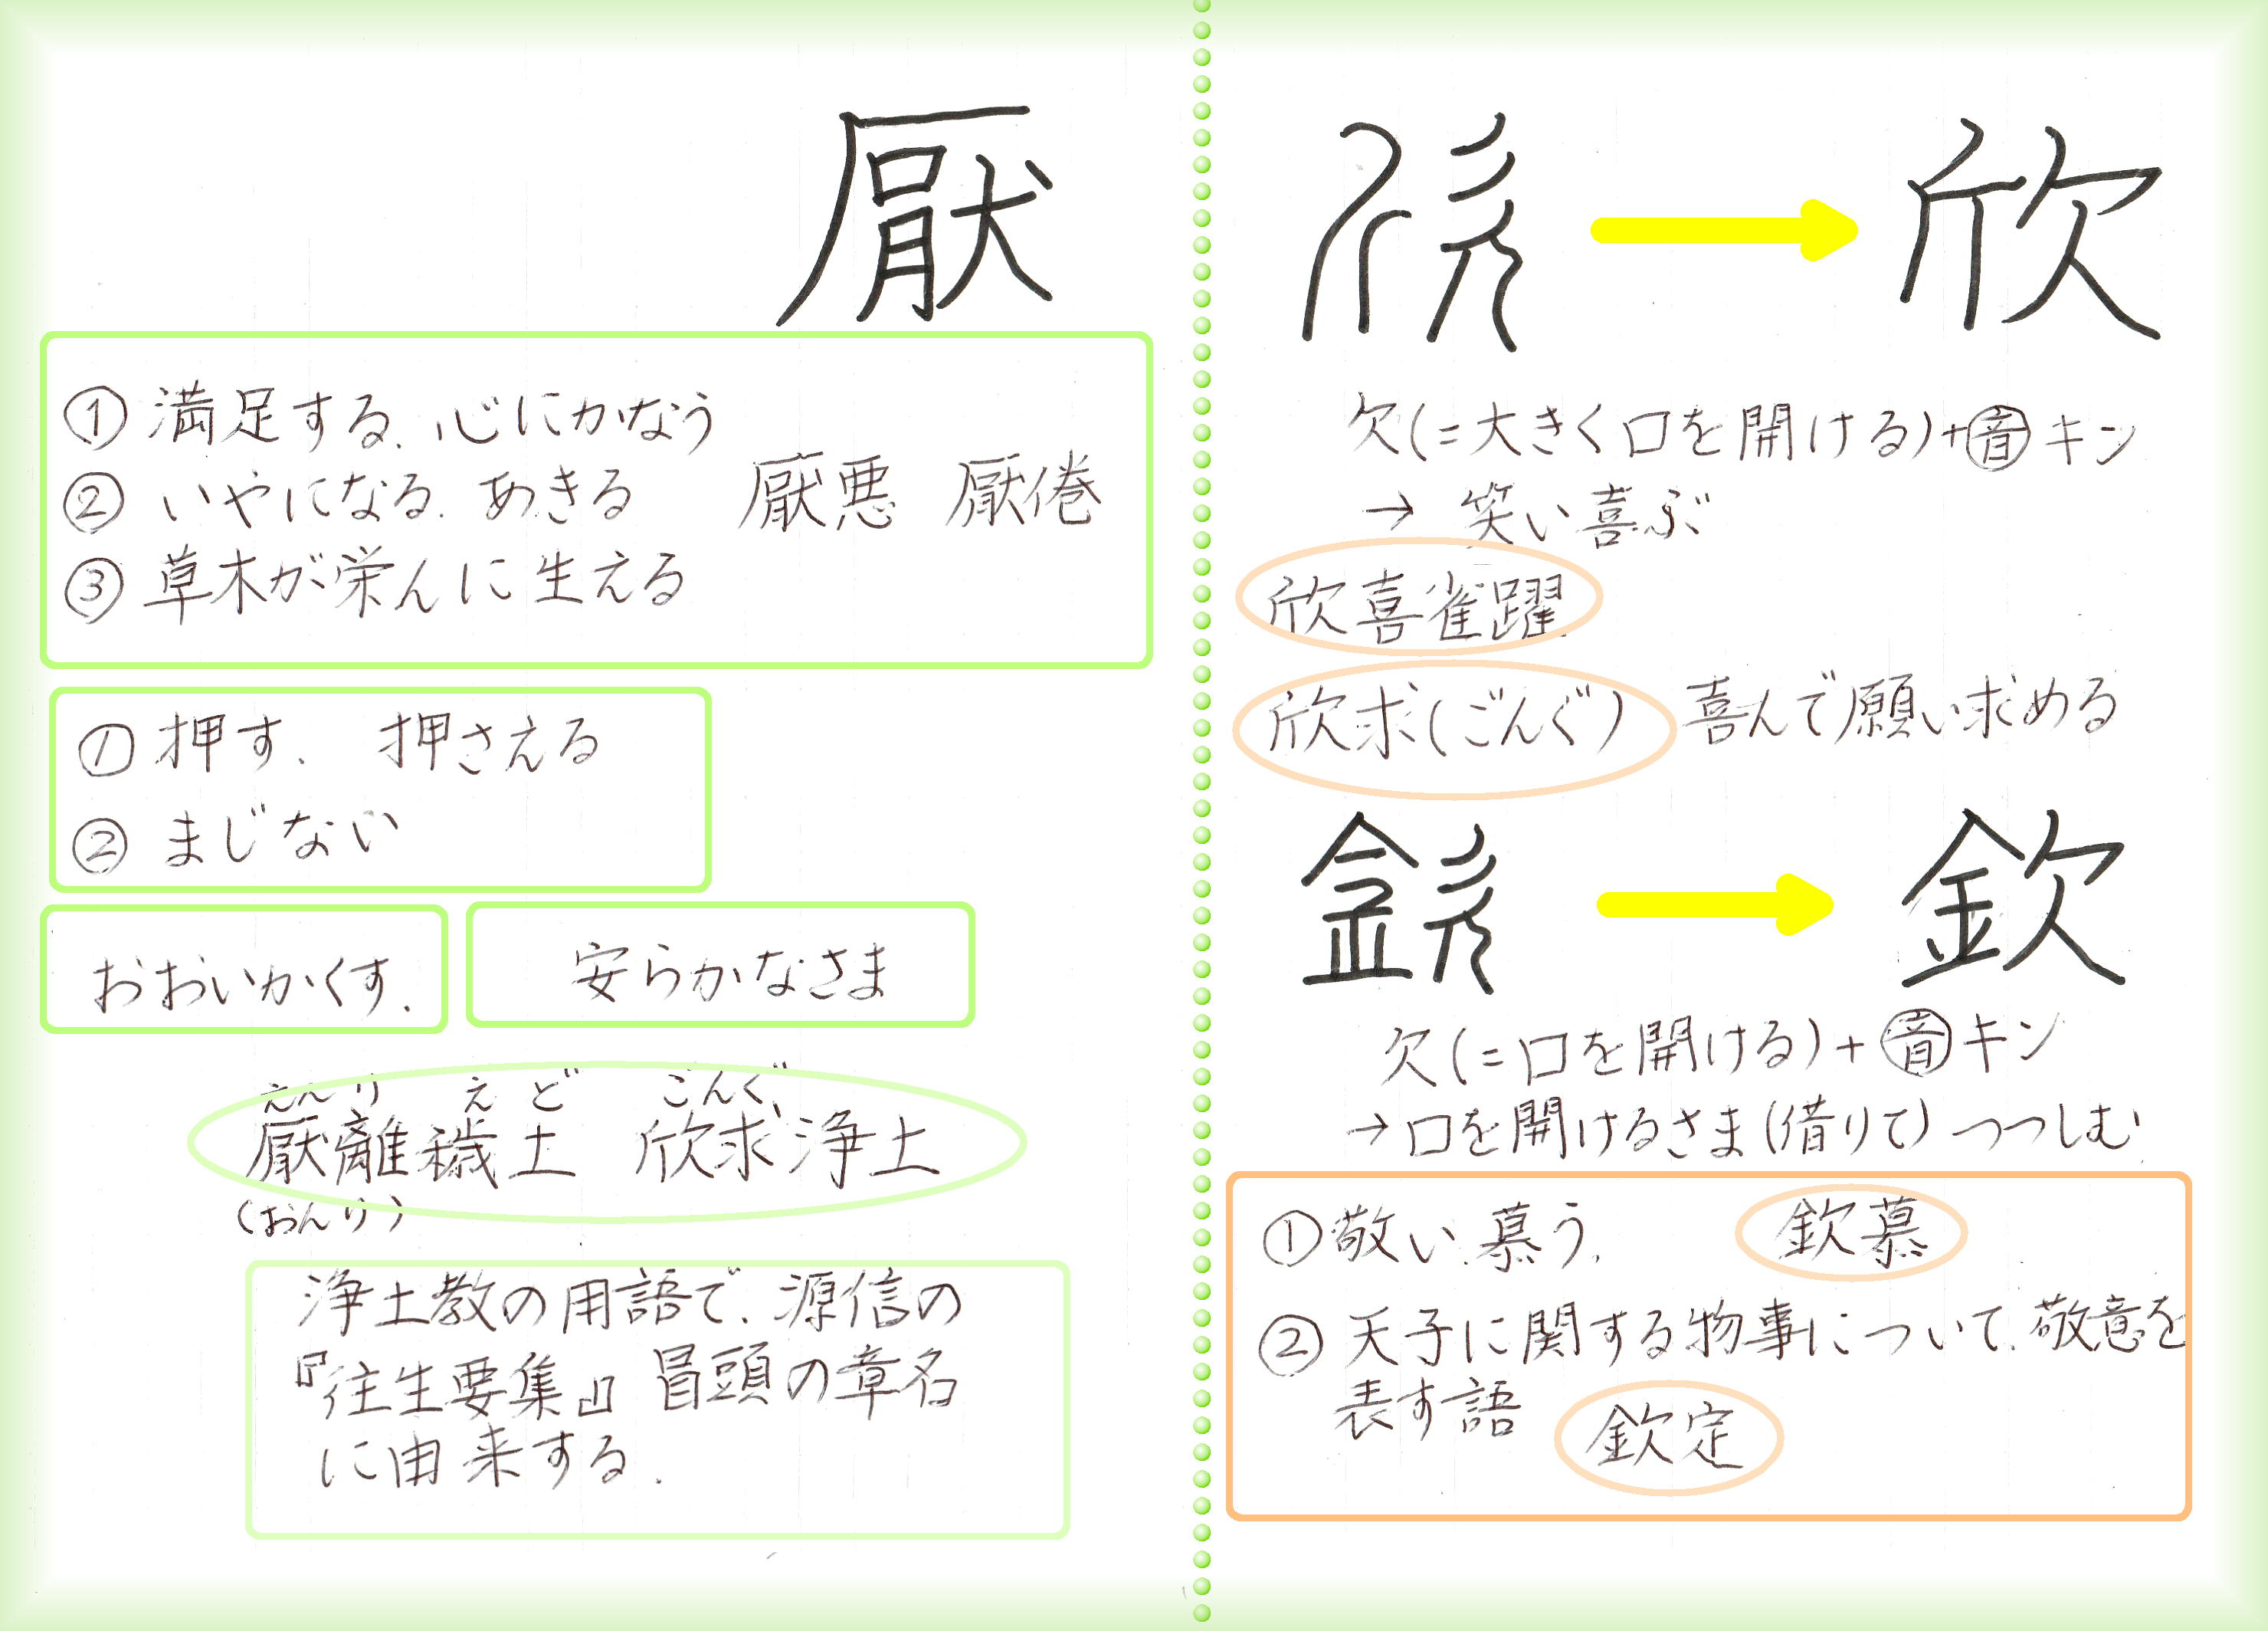 厭
① 満足する、心にかなう
② いやになる、あきる 厭悪 厭倦
③ 草木が栄んに生える
① 押す、押さえる
② まじない
おおいかくす。
安らかなさま
えんり えど ごんぐ
厭離穢土 欣求浄土
(おんり)
浄土教の用語で、源信の
『往生要集』冒頭の章名
に由来する。
欣 → 欣
欠(=大きく口を開ける)+音キン
→ 笑い喜ぶ
欣喜雀躍
欣求(ごんぐ) 喜んで願い求める
欽 → 欽
欠(=口を開ける)+音キン
→口を開けるさま(借りて)つつしむ
① 敬い、慕う。 欽慕
② 天子に関する物事について、敬意を
表す語 欽定